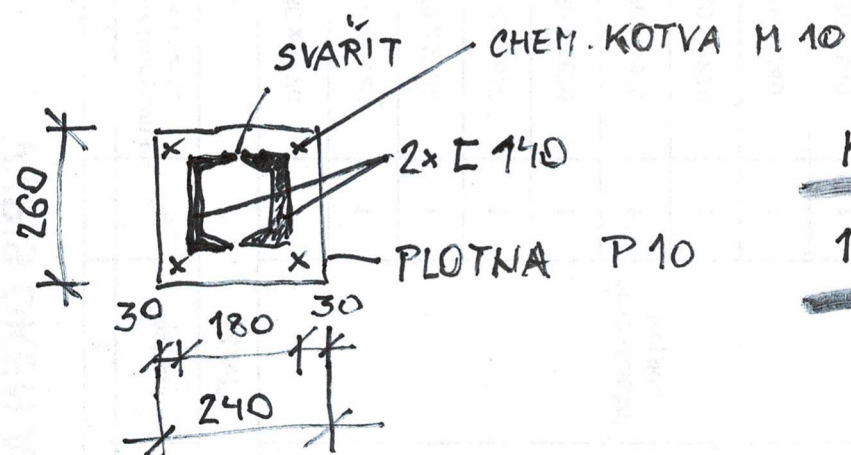 SVAŘIT
CHEM. KOTVA M 10
2x [ 140
PLOTNA P10
260
30 180 30
240